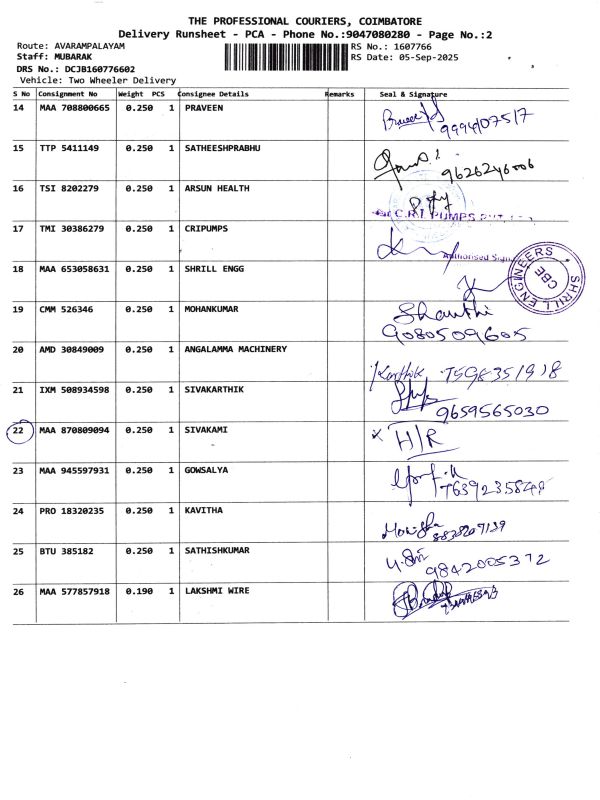 THE PROFESSIONAL COURIERS, COIMBATORE
Delivery Runsheet - PCA - Phone No.:9047080280 - Page No.:2
Route: AVARAMPALAYAM RS No.: 1607766
Staff: MUBARAK RS Date: 05-Sep-2025
DRS No.: DCJB160776602
Vehicle: Two Wheeler Delivery
S No Consignment No Weight PCS Consignee Details Remarks Seal & Signature
14 MAA 708800665 0.250 1 PRAVEEN
9994107517
15 TTP 5411149 0.250 1 SATHEESHPRABHU
9626246006
16 TSI 8202279 0.250 1 ARSUN HEALTH
C.R.I. PUMPS PVT.
17 TMI 30386279 0.250 1 CRIPUMPS
Authorised
18 MAA 653058631 0.250 1 SHRILL ENGG
SHRILL ENGINEERS
CBE
19 CMM 526346 0.250 1 MOHANKUMAR
Shanthi
9080509605
20 AMD 30849009 0.250 1 ANGALAMMA MACHINERY
Karthik
21 IXM 508934598 0.250 1 SIVAKARTHIK
9659565030
22 MAA 870809094 0.250 1 SIVAKAMI
x H/R
23 MAA 945597931 0.250 1 GOWSALYA
24 PRO 18320235 0.250 1 KAVITHA
Monisha
25 BTU 385182 0.250 1 SATHISHKUMAR
9842005372
26 MAA 577857918 0.190 1 LAKSHMI WIRE